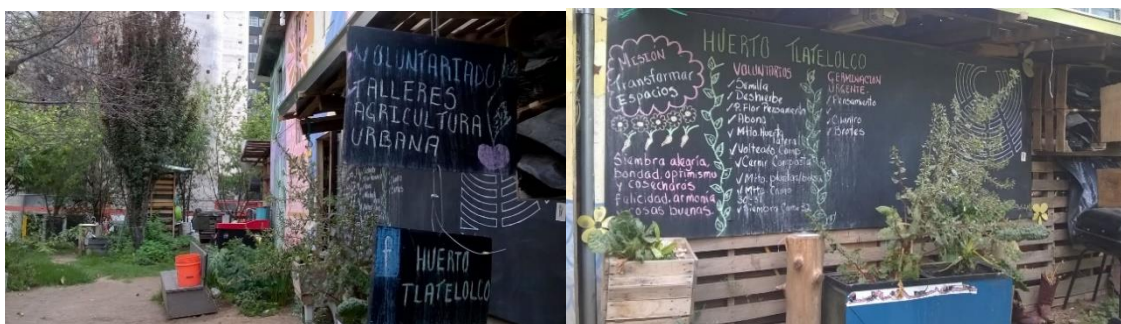 VOLUNTARIADO
TALLERES
AGRICULTURA
URBANA
HUERTO
TLATELOLCO
HUERTO TLATELOLCO
MISIÓN
Transformar
Espacios
Siembra alegría,
bondad, optimismo
y cosecharas
felicidad, armonia
y cosas buenas.
VOLUNTARIOS
✓ Semilla
✓ Deshierbe
✓ P. Flor Pensamiento
✓ Abono
✓ Mtto. Huerta
Lateral
✓ Volteado Camas
✓ Cernir Composta
✓ Mtto. plantas/bolsa
✓ Mtto Cama
30-31
✓ Siembra Cama 32
GERMINACION
URGENTE.
✓ Pensamiento
✓ Cilantro
✓ Brotes